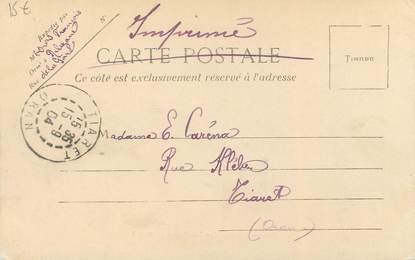 15€
Imprimé
CARTE POSTALE
Ce côté est exclusivement réservé à l'adresse
TIMBRE
TIARET
ORAN
15 35
15 -9
04
Madame E. Caréna
Rue Kléber
Tiaret
(Oran)